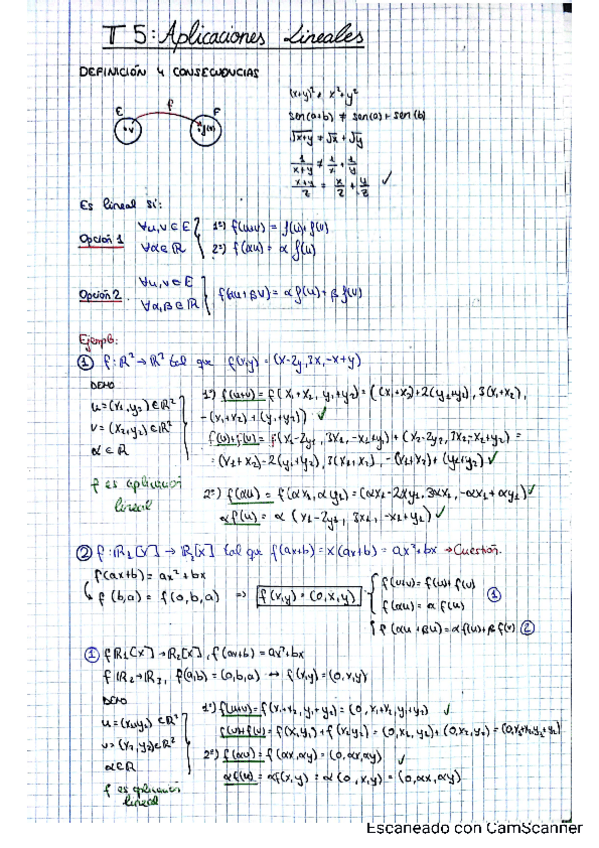 T 5: Aplicaciones Lineales
DEFINICIÓN Y CONSECUENCIAS
E f F
v f(v)
(x+y)² ≠ x²+y²
sen(a+b) ≠ sen(a)+sen(b)
√x+y ≠ √x + √y
1/(x+y) ≠ 1/x + 1/y
(x+y)/2 = x/2 + y/2 ✓
Es lineal si:
Opción 1 ∀u,v∈E ∀α∈R } 1º) f(u+v) = f(u)+f(v)
2º) f(αu) = α f(u)
Opción 2 ∀u,v∈E ∀α,β∈R } f(αu+βv) = αf(u)+βf(v)
Ejemplo:
① f:R²→R² tal que f(x,y) = (x-2y,3x,-x+y)
DEMO
u=(x1,y1)∈R²
v=(x2,y2)∈R²
α∈R
f es aplicación
lineal
1º) f(u+v) = f(x1+x2, y1+y2) = ((x1+x2)+2(y1+y2), 3(x1+x2),
-(x1+x2)+(y1+y2)) ✓
f(u)+f(v) = f(x1-2y1, 3x1, -x1+y1) + (x2-2y2, 3x2-x2+y2) =
= (x1+x2)-2(y1+y2), 3(x1+x2), -(x1+x2)+(y1+y2) ✓
2º) f(αu) = f(αx1, αy1) = (αx1-2αy1, 3αx1, -αx1+αy1) ✓
αf(u) = α(x1-2y1, 3x1, -x1+y1) ✓
② f:R1[x]→R2[x] tal que f(ax+b) = x(ax+b) = ax²+bx → Cuestión.
f(ax+b) = ax²+bx
f(b,a) = f(0,b,a) ⇒ f(x,y) = (0,x,y)
f(u+v) = f(u)+f(v)
f(αu) = αf(u) ①
f(αu+βu) = αf(u)+βf(v) ②
① f R1[x]→R2[x], f(ax+b) = ax²+bx
f R2→R3, f(a,b) = (0,b,a) ↔ f(x,y) = (0,x,y)
DEMO
u=(x1,y1)∈R²
v=(x2,y2)∈R²
α∈R
f es aplicación
lineal
1º) f(u+v) = f(x1+x2, y1+y2) = (0, x1+x2, y1+y2) ✓
f(u)+f(v) = f(x1,y1)+f(x2,y2) = (0,x1,y1)+(0,x2,y2) = (0,x1+x2,y1+y2)
2º) f(αu) = f(αx,αy) = (0,αx,αy) ✓
αf(u) = αf(x,y) = α(0,x,y) = (0,αx,αy)
Escaneado con CamScanner